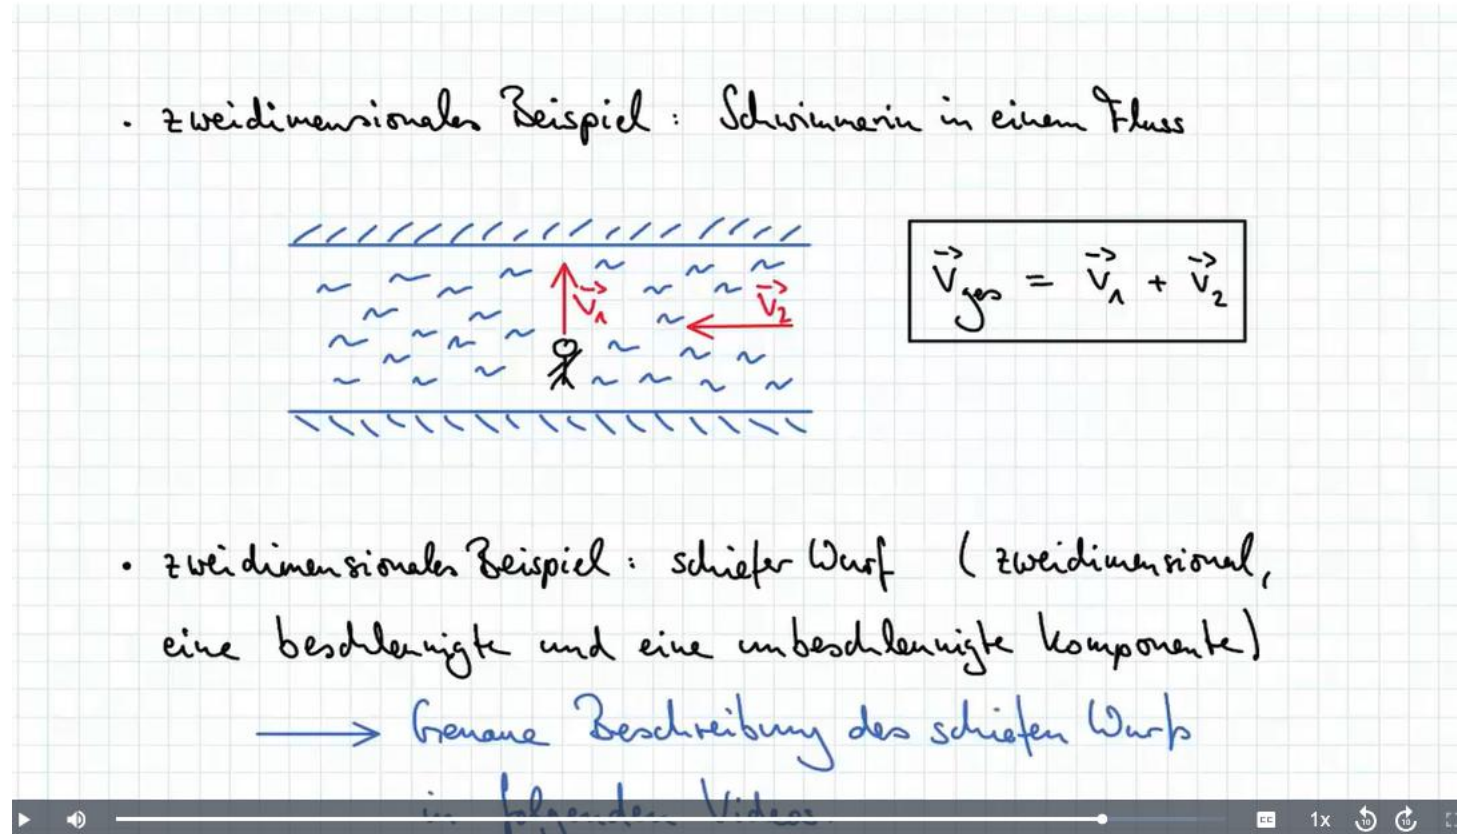 • zweidimensionales Beispiel : Schwimmerin in einem Fluss
v⃗₁
v⃗₂
v⃗ges = v⃗₁ + v⃗₂
• zweidimensionales Beispiel : schiefer Wurf ( zweidimensional,
eine beschleunigte und eine unbeschleunigte Komponente)
→ Genaue Beschreibung des schiefen Wurfs
in folgenden Videos.
CC 1x 10 10